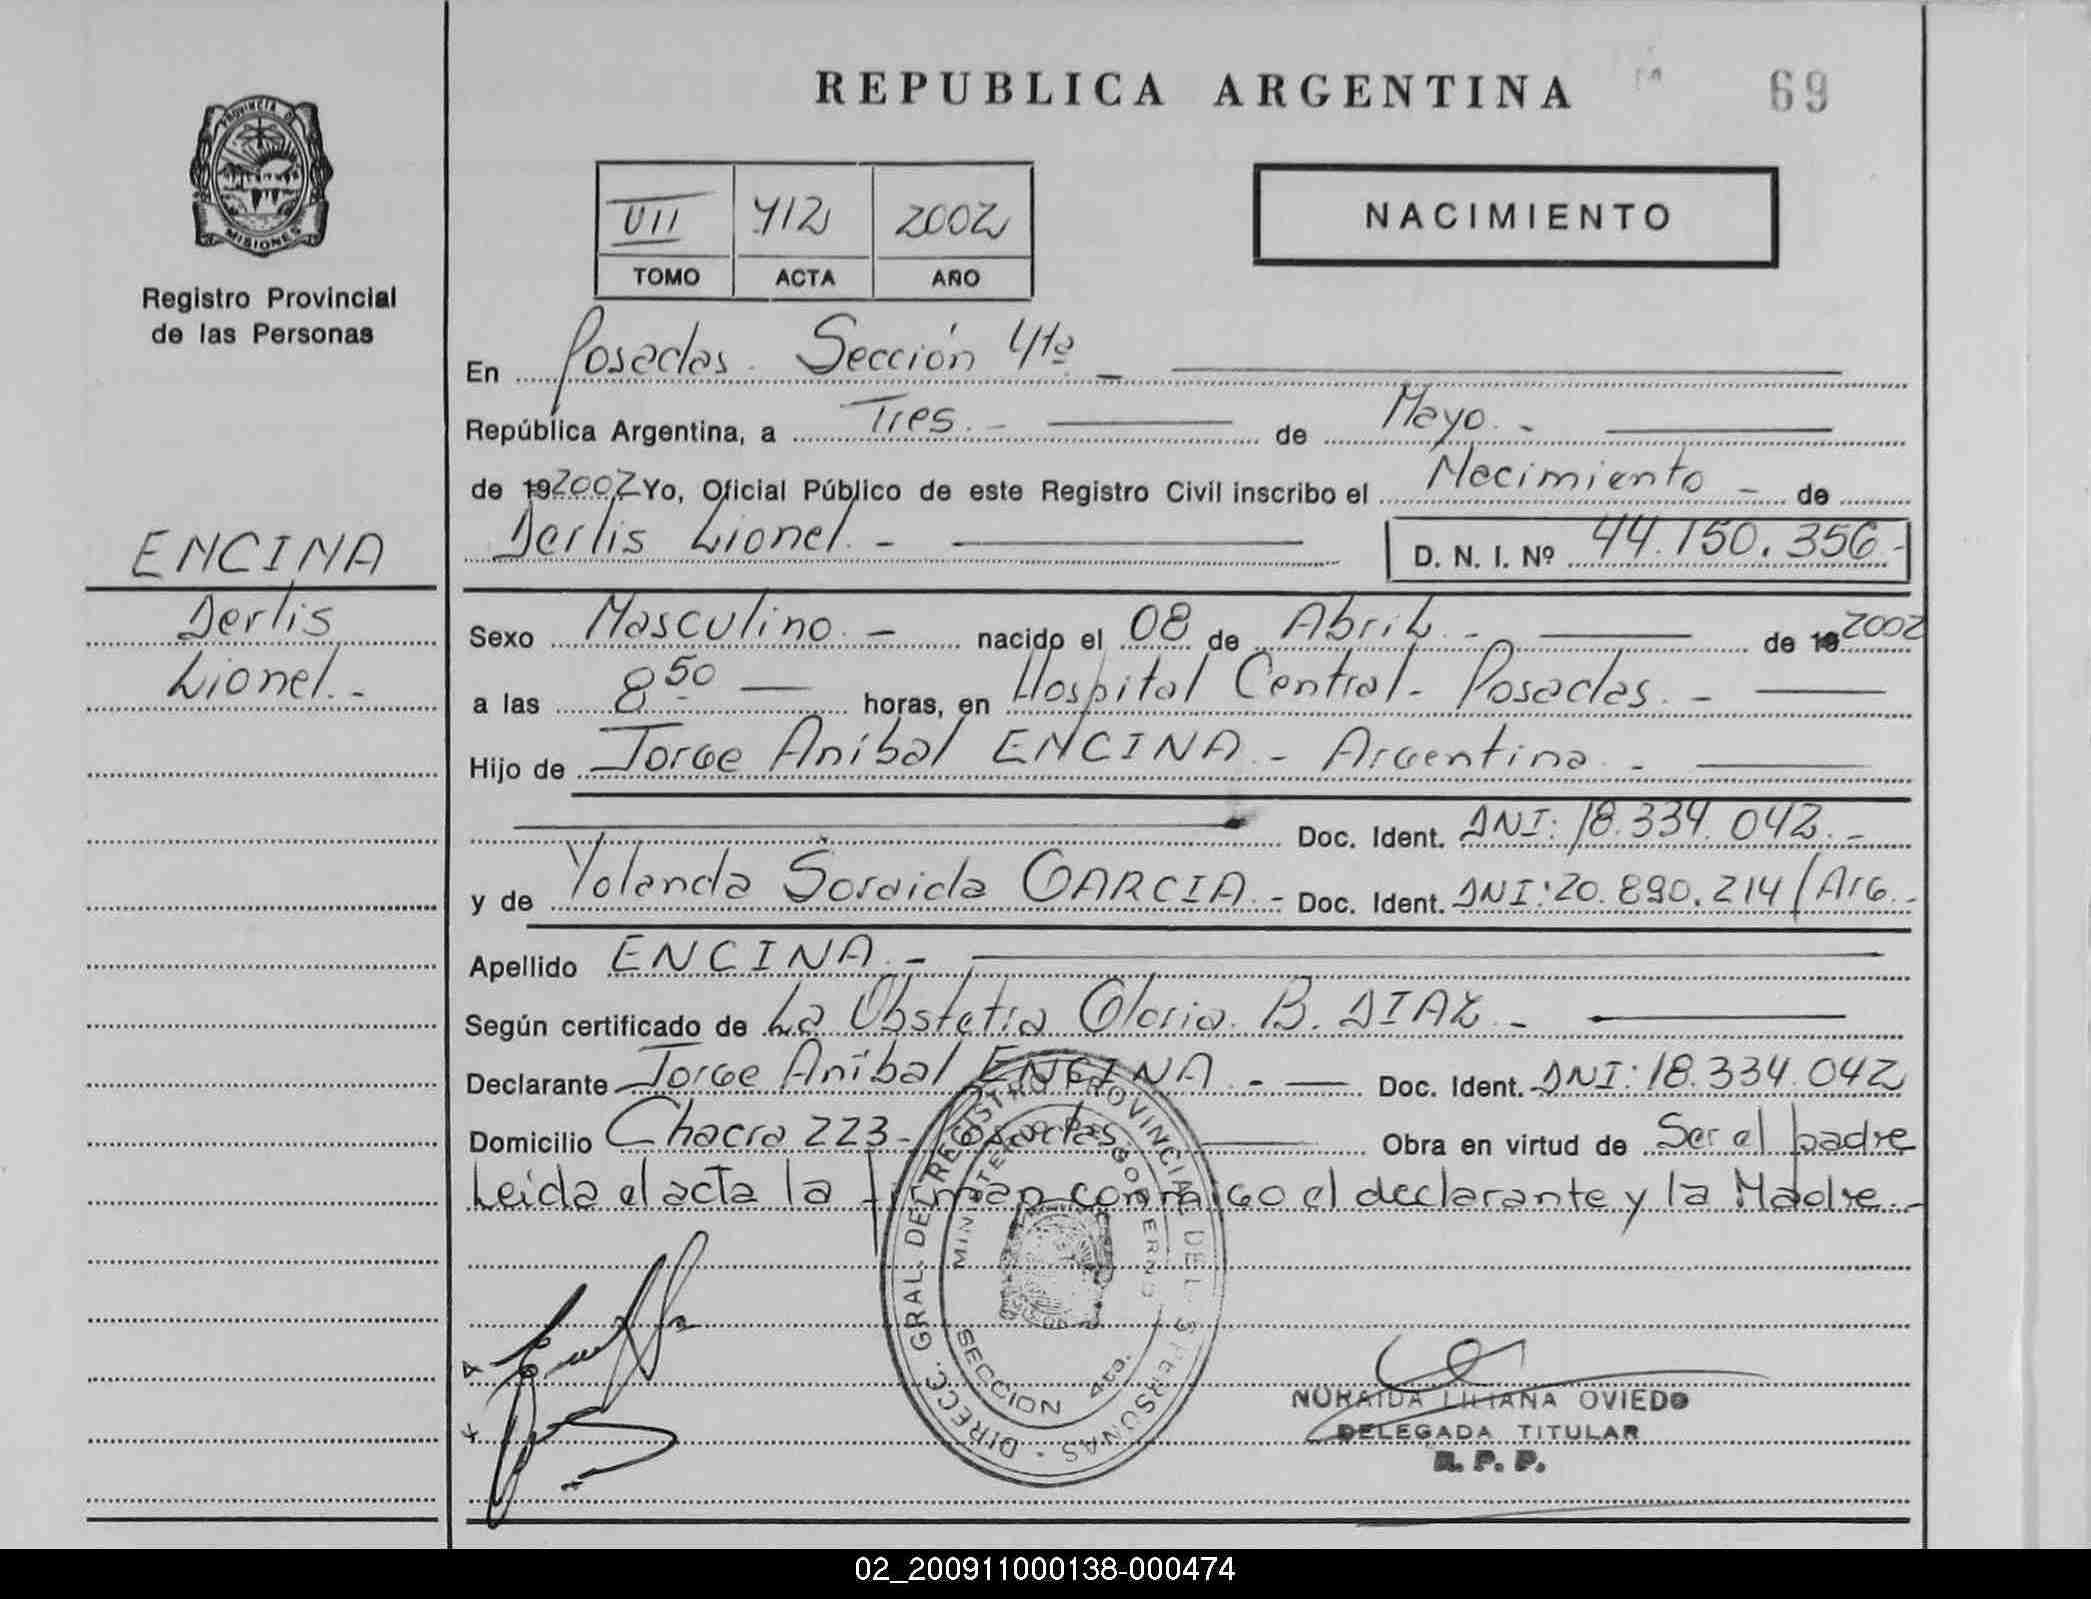 REPUBLICA ARGENTINA
69
PROVINCIA DE
MISIONES
Registro Provincial
de las Personas
VII 412 2002
TOMO ACTA AÑO
NACIMIENTO
En Posadas. Sección 4ta. -
República Argentina, a Tres. - de Mayo. -
de 192002 Yo, Oficial Público de este Registro Civil inscribo el Nacimiento - de
Derlis Lionel. - D. N. I. Nº 44.150.356.-
ENCINA
Derlis
Lionel. -
Sexo Masculino. - nacido el 08 de Abril. - de 192002
a las 8 50 horas, en Hospital Central - Posadas. -
Hijo de Jorge Aníbal ENCINA - Argentino. -
Doc. Ident. DNI: 18.334.042. -
y de Yolanda Soraida GARCIA. - Doc. Ident. DNI: 20.890.214 / Arg. -
Apellido ENCINA. -
Según certificado de La Obstetra Gloria B. DIAZ -
Declarante Jorge Aníbal ENCINA. - Doc. Ident. DNI: 18.334.042
Domicilio Chacra 223 - Posadas. Obra en virtud de Ser el padre
Leida el acta la firman conmigo el declarante y la Madre. -
DIRECC. GRAL. DEL REGISTRO PROVINCIAL DE L S PERSONAS
MINISTERIO GOBIERNO
SECCION 4ta.
NORAIDA LILIANA OVIEDO
DELEGADA TITULAR
R. P. P.
02_200911000138-000474